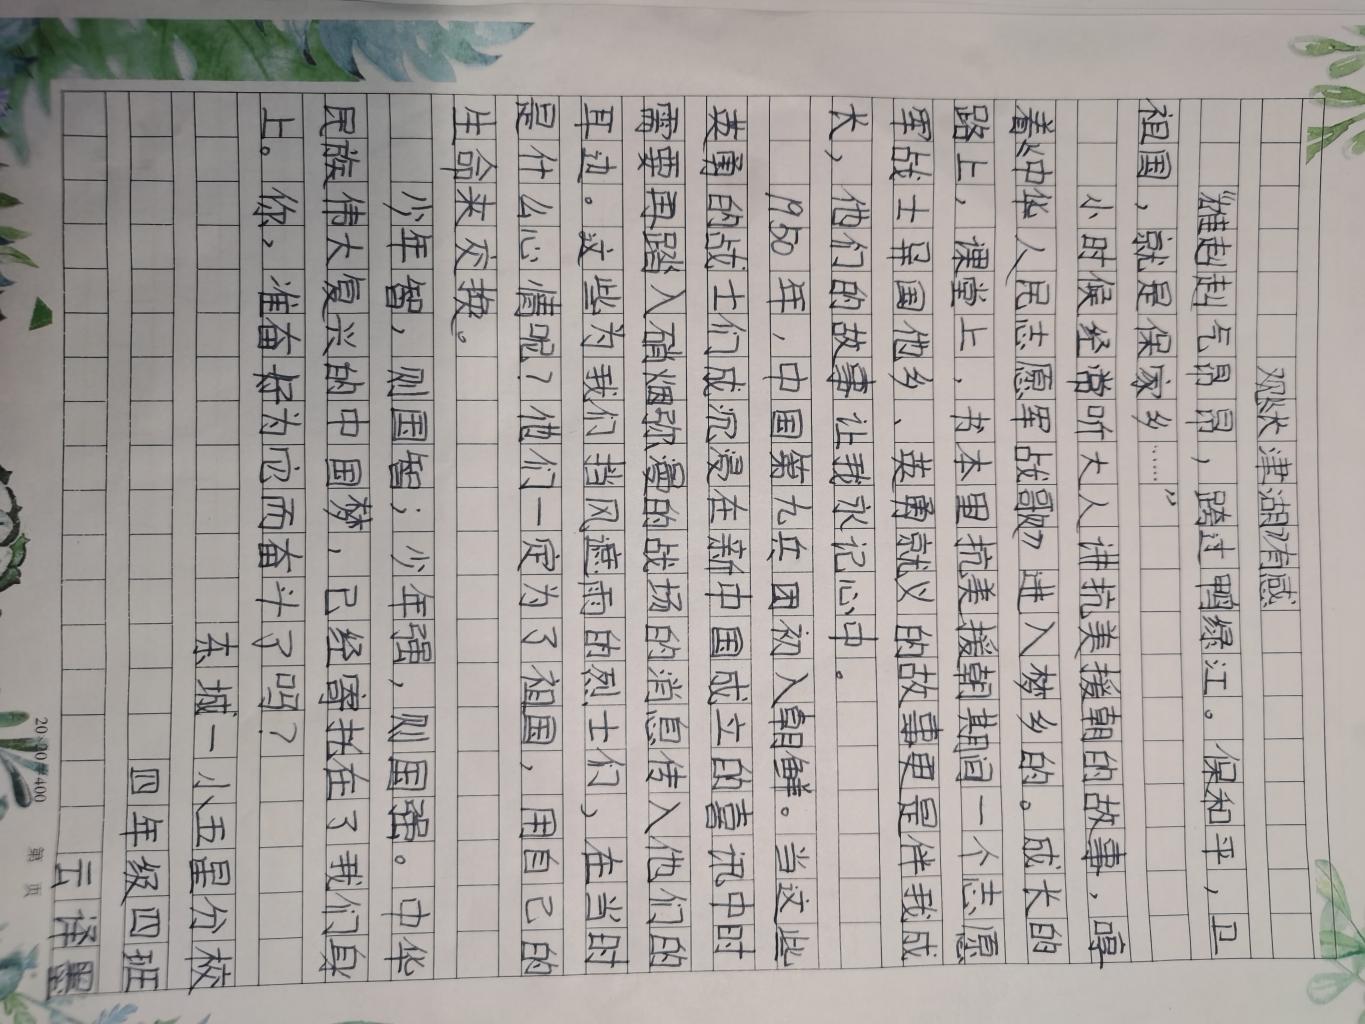 观长津湖有感
“雄赳赳气昂昂，跨过鸭绿江。保和平，卫
祖国，就是保家乡……”
小时候经常听大人讲抗美援朝的故事，哼
着《中华人民志愿军战歌》进入梦乡的。成长的
路上，课堂上，书本里抗美援朝期间一个志愿
军战士异国他乡、英勇就义的故事更是伴我成
长，他们的故事让我永记心中。
1950年，中国第九兵团初入朝鲜。当这些
英勇的战士们成沉浸在新中国成立的喜讯中时
需要再踏入硝烟弥漫的战场的消息传入他们的
耳边。这些为我们挡风遮雨的烈士们，在当时
是什么心情呢？他们一定为了祖国，用自己的
生命来交换。
少年智，则国智；少年强，则国强。中华
民族伟大复兴的中国梦，已经寄托在了我们身
上。你，准奋好为它而奋斗了吗？
东城一小五星分校
四年级四班
云泽墨
20×20=400 第 页